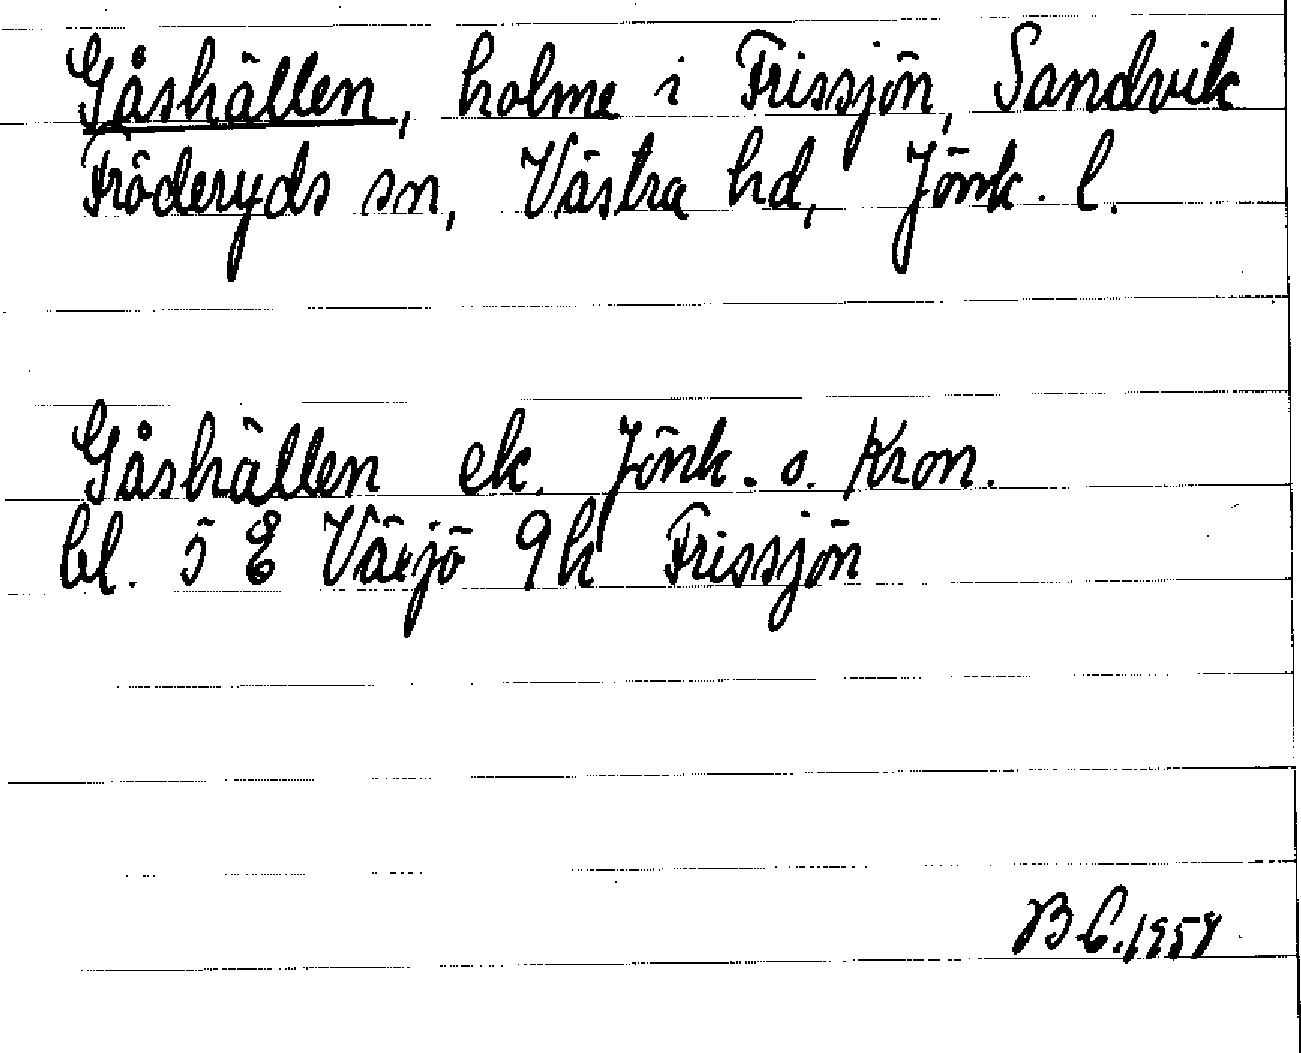 Gåshällen, holme i Frissjön, Sandvik
Fröderyds sn, Västra hd, Jönk. l.
Gåshällen ek. Jönk. o. Kron.
bl. 5 E Växjö 9h Frissjön
B C. 1957